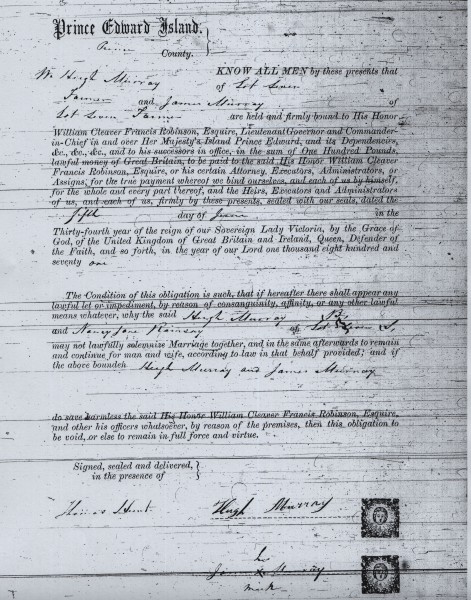 Prince Edward Island.
Prince
County.
KNOW ALL MEN by these presents that
We Hugh Murray of Lot Seven
Farmer and James Murray of
Lot Seven Farmer are held and firmly bound to His Honor
William Cleaver Francis Robinson, Esquire, Lieutenant Governor and Commander-
in-Chief in and over Her Majesty's Island Prince Edward, and its Dependencies,
&c., &c., &c., and to his successors in office, in the sum of One Hundred Pounds,
lawful money of Great Britain, to be paid to the said His Honor William Cleaver
Francis Robinson, Esquire, or his certain Attorney, Executors, Administrators, or
Assigns, for the true payment whereof we bind ourselves, and each of us by himself,
for the whole and every part thereof, and the Heirs, Executors and Administrators
of us, and each of us, firmly by these presents, sealed with our seals, dated the
fifth day of June in the
Thirty-fourth year of the reign of our Sovereign Lady Victoria, by the Grace of
God, of the United Kingdom of Great Britain and Ireland, Queen, Defender of
the Faith, and so forth, in the year of our Lord one thousand eight hundred and
seventy one
The Condition of this obligation is such, that if hereafter there shall appear any
lawful let or impediment, by reason of consanguinity, affinity, or any other lawful
means whatever, why the said Hugh Murray
and Nancy Jane Ramsay of Lot Seven
may not lawfully solemnize Marriage together, and in the same afterwards to remain
and continue for man and wife, according to law in that behalf provided; and if
the above bounden Hugh Murray and James Murray
do save harmless the said His Honor William Cleaver Francis Robinson, Esquire,
and other his officers whatsoever, by reason of the premises, then this obligation to
be void, or else to remain in full force and virtue.
Signed, sealed and delivered,
in the presence of
Thomas Hunt Hugh Murray
his
James X Murray
mark